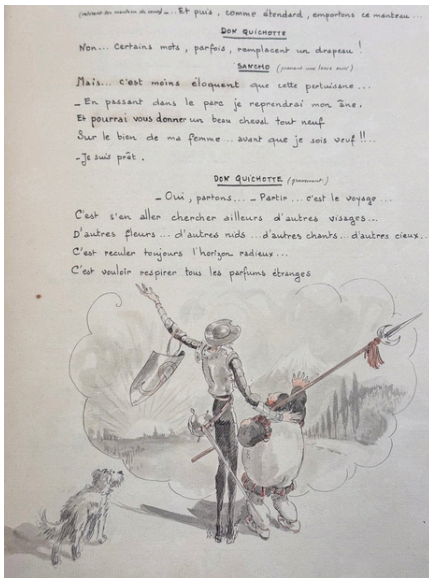 ... Et puis, comme étendard, emportons ce manteau...
DON QUICHOTTE
Non... Certains mots, parfois, remplacent un drapeau !
SANCHO (prenant une lance aussi)
Mais... c'est moins éloquent que cette pertuisane...
_ En passant dans le parc je reprendrai mon âne.
Et pourrai vous donner un beau cheval tout neuf
Sur le bien de ma femme... avant que je sois veuf !!..
- Je suis prêt.
DON QUICHOTTE (gravement)
_ Oui, partons... _ Partir... c'est le voyage...
C'est s'en aller chercher ailleurs d'autres visages...
D'autres fleurs... d'autres nids... d'autres chants... d'autres cieux..
C'est reculer toujours l'horizon radieux...
C'est vouloir respirer tous les parfums étranges